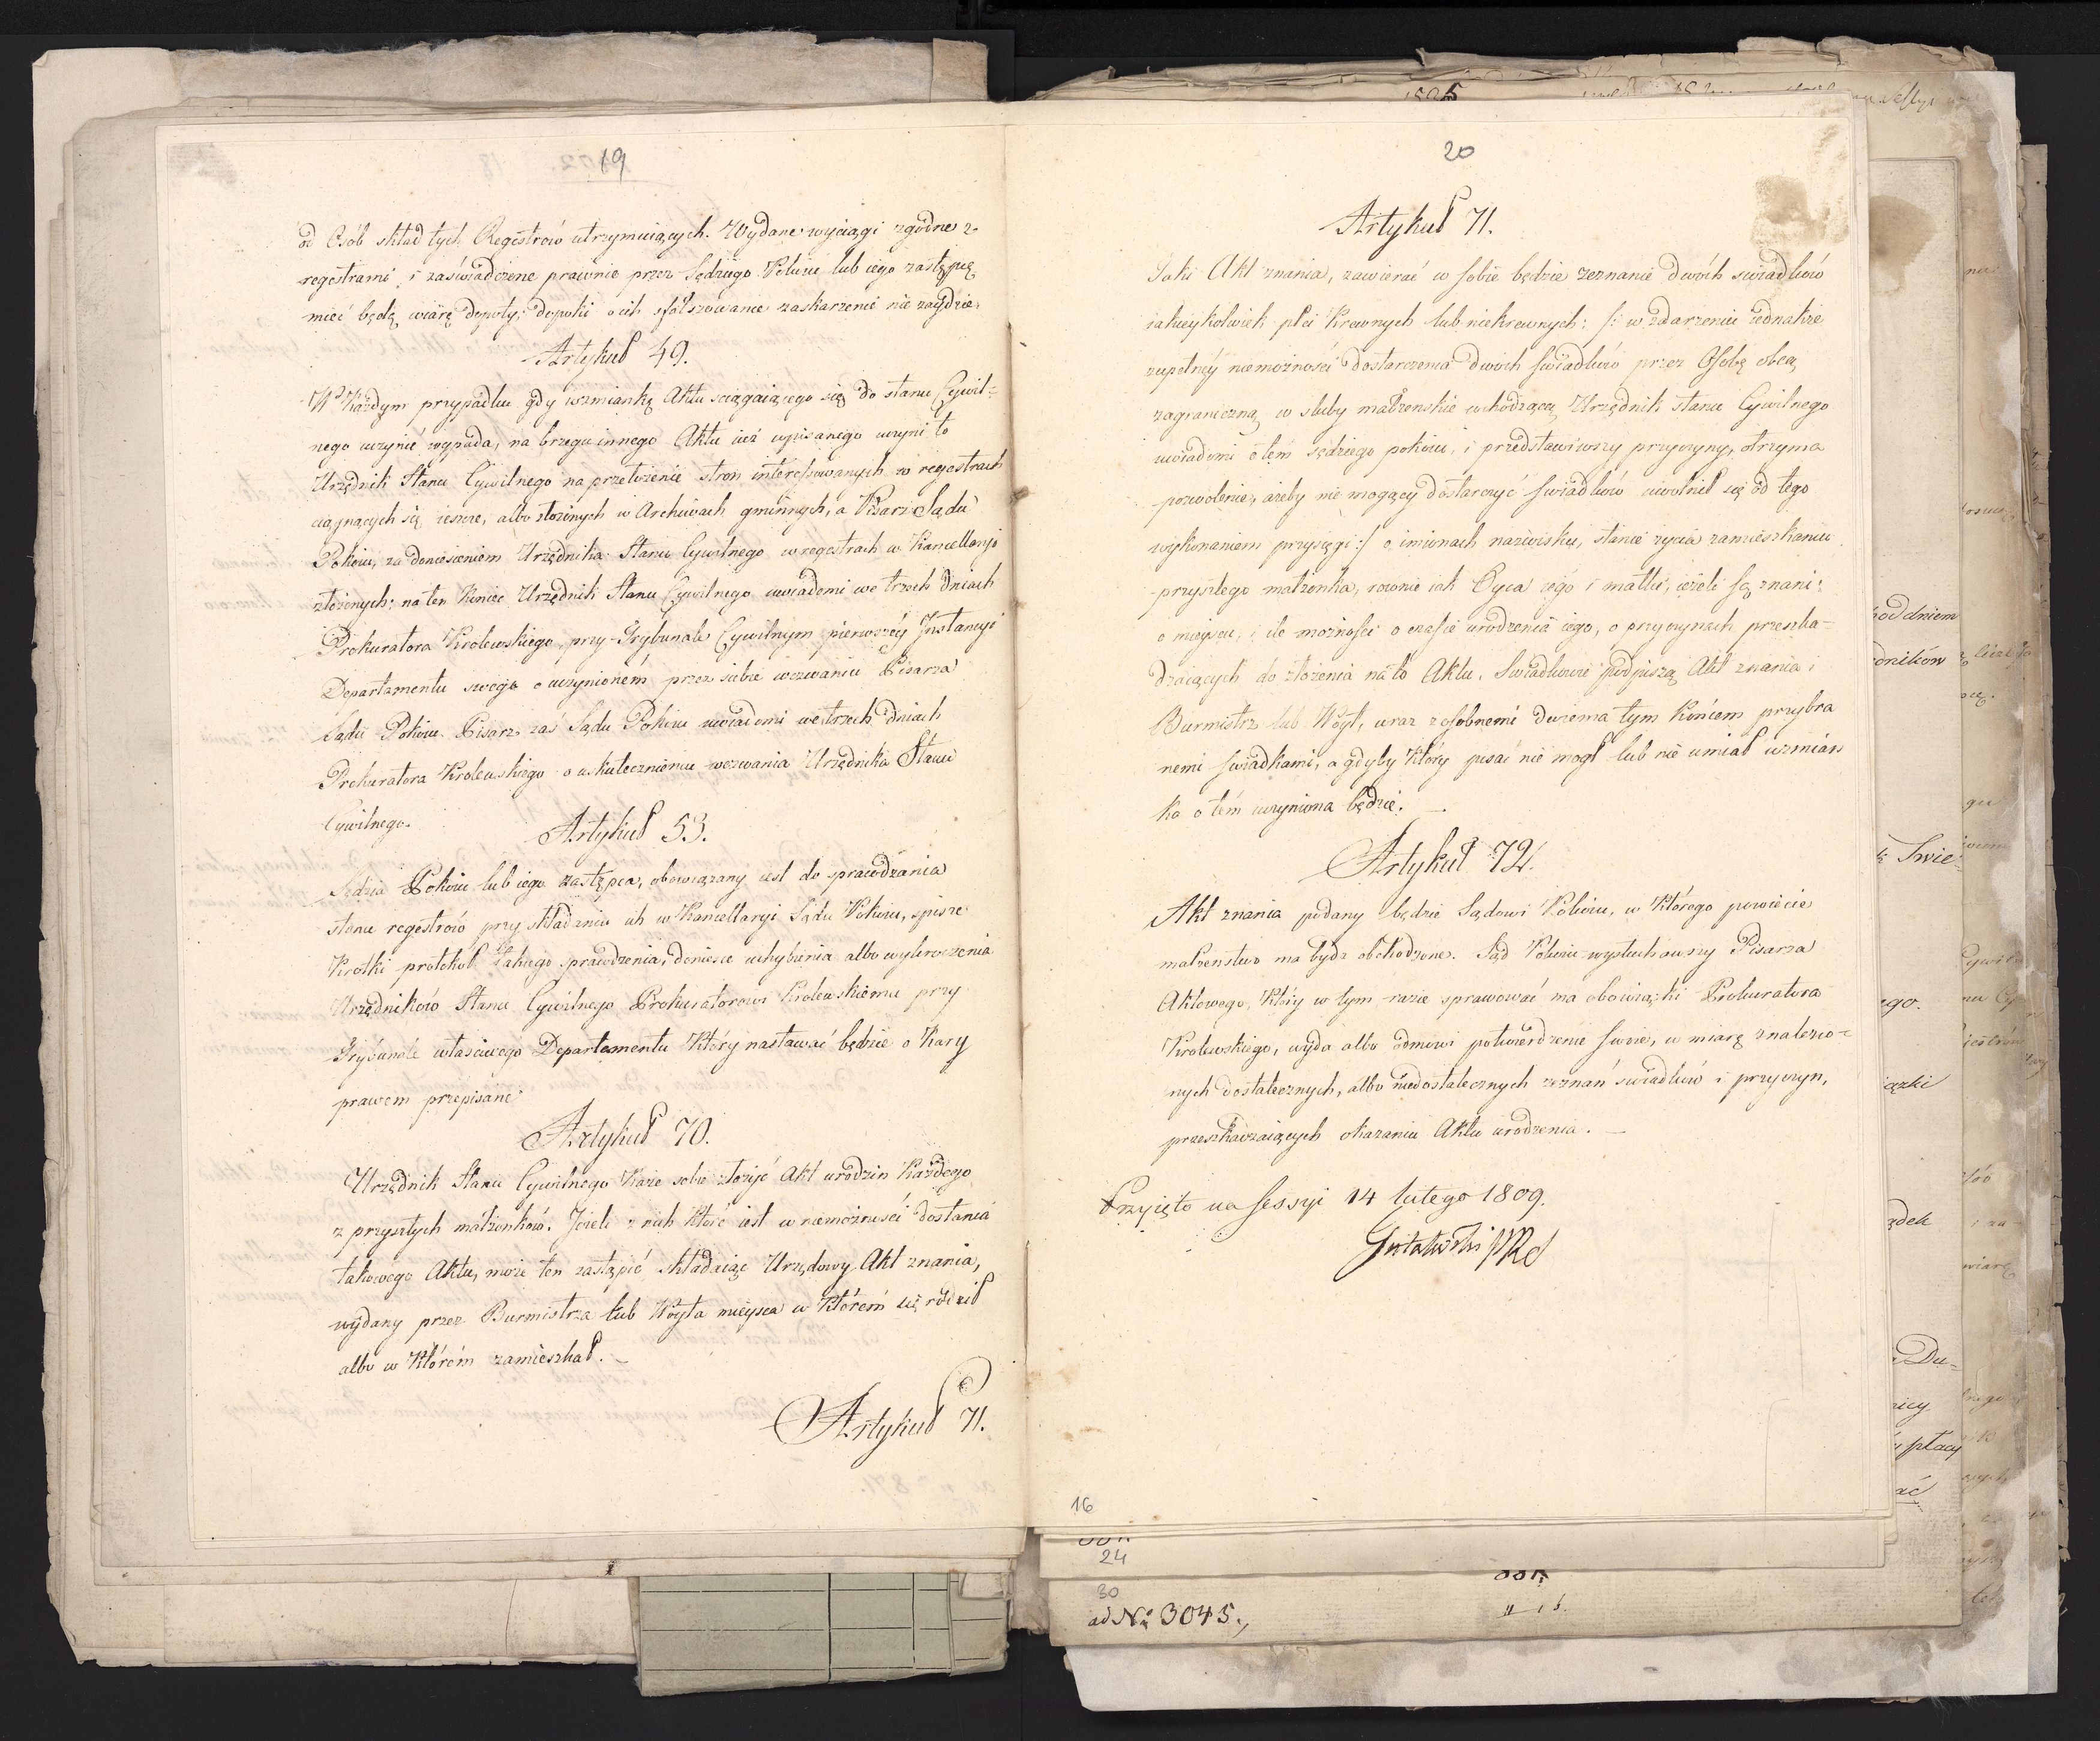 19
od Osób skład tych Regestrów utrzymuiących. Wydane wyciągi zgodne z
regestrami i zaświadczone prawnie przez Sędziego Pokoiu lub iego zastępcę
mieć będą wiarę dopoty; dopoki o ich sfałszowanie zaskarzenie nie zaydzie.
Artykuł 49.
W Każdym przypadku gdy wzmiankę Aktu sciągaiącego się do stanu Cywil=
nego uczynić wypada, na brzegu innego Aktu iuż wpisanego uczyni to
Urzędnik Stanu Cywilnego na przełożenie stron interessowanych w regestrach
ciągnących się ieszcze, albo złożonych w Archiwach gminnych, a Pisarz Sądu
Pokoiu, za doniesieniem Urzędnika Stanu Cywilnego w regestrach w Kancellaryi
złożonych; na ten Koniec Urzędnik Stanu Cywilnego uwiadomi we trzech dniach
Prokuratora Krolewskiego, przy Trybunale Cywilnym pierwszéy Instancyi
Departamentu swego o uczynioném przez siebie wezwaniu Pisarza
Sądu Pokoiu. Pisarz zas Sądu Pokoiu uwiadomi we trzech dniach
Prokuratora Krolewskiego o uskutecznieniu wezwania Urzędnika Stanu
Cywilnego.
Artykuł 53.
Sędzia Pokoiu lub iego zastępca, obowiązany iest do sprawdzania
stanu regestrów przy składaniu ich w Kancellaryi Sądu Pokoiu, spisze
Krotki protokoł takiego sprawdzenia, doniesie uchybienia albo wykroczenia
Urzędników Stanu Cywilnego Prokuratorowi Krolewskiemu przy
Trybunale własciwego Departamentu Który nastawać będzie o Kary
prawem przepisane
Artykuł 70.
Urzędnik Stanu Cywilnego Każe sobie złożyć Akt urodzin Każdego
z przyszłych małżonków. Jeżeli z nich Które iest w niemożnosci dostania
takowego Aktu, może ten zastąpić składaiąc Urzędowy Akt znania,
wydany przez Burmistrza lub Woyta mieysca w Którém się rodził
albo w Którém zamieszkał.
Artykuł 71.
20
Artykuł 71.
Taki Akt znania, zawierać w sobie będzie zeznanie dwóch swiadków
iakieykolwiek płci Krewnych lub niekrewnych: /: w zdarzeniu iednakże
zupełnéy niemożności dostarczenia dwoch swiadków przez Osobę obcą
zagraniczną w sluby małżenskie wchodzącą Urzędnik stanu Cywilnego
uwiadomi o tém sędziego pokoiu, i przedstawiwszy przyczyny, otrzyma
pozwolenie, ażeby nie mogący dostarczyć swiadków uwolnił się od tego
wykonaniem przysięgi :/ o imionach nazwisku, stanie życia zamieszkaniu
przyszłego małżonka, rownie iak Oyca iego i matki, ieżeli są znani;
o mieyscu, i ile możności o czasie urodzenia iego, o przyczynach przeszka=
dzaiących do złożenia na to Aktu. Swiadkowie podpiszą Akt znania i
Burmistrz lub Woyt, wraz z osobnemi dwiema tym Końcem przybra
nemi swiadkami, a gdyby Który pisać nie mogł lub nie umiał wzmian
ka o tém uczyniona będzie.
Artykuł 72.
Akt znania podany będzie Sądowi Pokoiu, w Którego powiecie
małżenstwo ma bydź obchodzone. Sąd Pokoiu wysłuchawszy Pisarza
Aktowego, Który w tym razie sprawować ma obowiązki Prokuratora
Krolewskiego, wyda albo odmowi potwierdzenie swoie, w miarę znalezio=
nych dostatecznych, albo niedostatecznych zeznań swiadków i przyczyn,
przeszkadzaiących okazaniu Aktu urodzenia.
Przyięto na sessyi 14 lutego 1809.
16
24
30
ad No 3045.